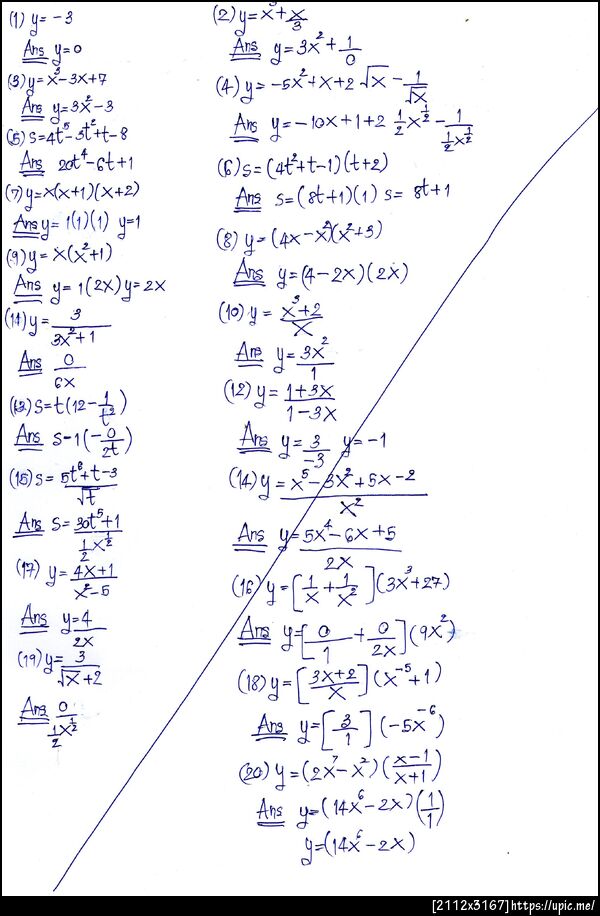 (1) y = -3
Ans y = 0
(3) y = x³ - 3x + 7
Ans y = 3x² - 3
(5) s = 4t⁵ - 3t² + t - 8
Ans 20t⁴ - 6t + 1
(7) y = x(x+1)(x+2)
Ans y = 1(1)(1) y = 1
(9) y = x(x²+1)
Ans y = 1(2x) y = 2x
(11) y = 3/(3x²+1)
Ans 0/6x
(13) s = t(12 - 1/t²)
Ans s - 1(-0/2t)
(15) s = (5t⁶+t-3)/√t
Ans s = (30t⁵+1)/(½x^½)
(17) y = (4x+1)/(x²-5)
Ans y = 4/2x
(19) y = 3/(√x+2)
Ans 0/(½x^½)
(2) y = x³ + x/3
Ans y = 3x² + 1/0
(4) y = -5x² + x + 2√x - 1/√x
Ans y = -10x + 1 + 2 ½x^½ - 1/(½x^½)
(6) s = (4t²+t-1)(t+2)
Ans s = (8t+1)(1) s = 8t+1
(8) y = (4x-x²)(x²+3)
Ans y = (4-2x)(2x)
(10) y = (x³+2)/x
Ans y = 3x²/1
(12) y = (1+3x)/(1-3x)
Ans y = 3/-3 y = -1
(14) y = (x⁵-3x²+5x-2)/x²
Ans y = (5x⁴-6x+5)/2x
(16) y = [1/x + 1/x²](3x³+27)
Ans y = [0/1 + 0/2x](9x²)
(18) y = [(3x+2)/x](x⁻⁵+1)
Ans y = [3/1](-5x⁻⁶)
(20) y = (2x⁷-x²)((x-1)/(x+1))
Ans y = (14x⁶-2x)(1/1)
y = (14x⁶-2x)
[2112x3167]https://upic.me/